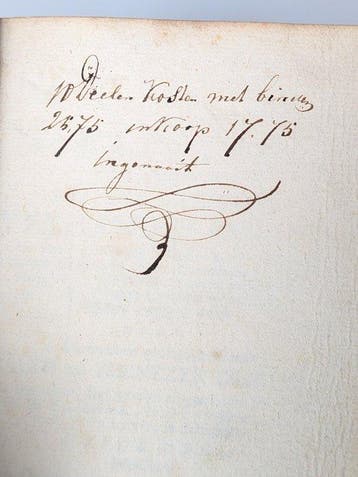 10 Deelen Kosten met binden
25,75 inkoop 17.75
ingenaait